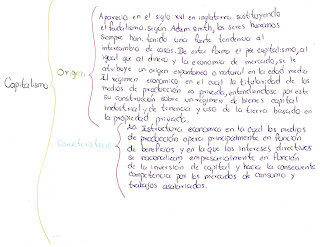 Capitalismo
Origen
Aparecio en el siglo XVI en inglaterra sustituyendo
el feudalismo. Según Adam smith, los seres humanos
siempre han tenido una fuerte tendencia al
intercambio de cosas. De esta forma el pre capitalismo, al
igual que al dinero y la economia de mercado, se le
atribuye un origen espontaneo o natural en la edad media
El regimen economico en el cual la titularidad de los
medios de producción es privada, entendiendose por esto
su construcción sobre un regimen de bienes capital
industrial y de tenencia y uso de la tierra basado en
la propiedad privada.
Caracteristicas
La Estructura economica en la cual los medios
de producción opera principalmente en función
de beneficios y en la que los intereses directivos
se racionalizan empresarialmente en función
de la inversion de capital y hacia la consecuente
competencia por los mercados de consumo y
trabajos asalariados.